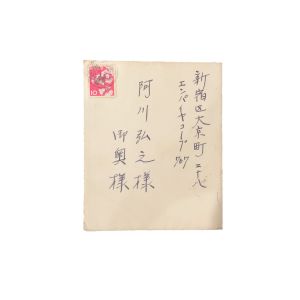 新宿区大京町二十八
エンパイヤコープ 707
阿川弘之様
御奥様
10